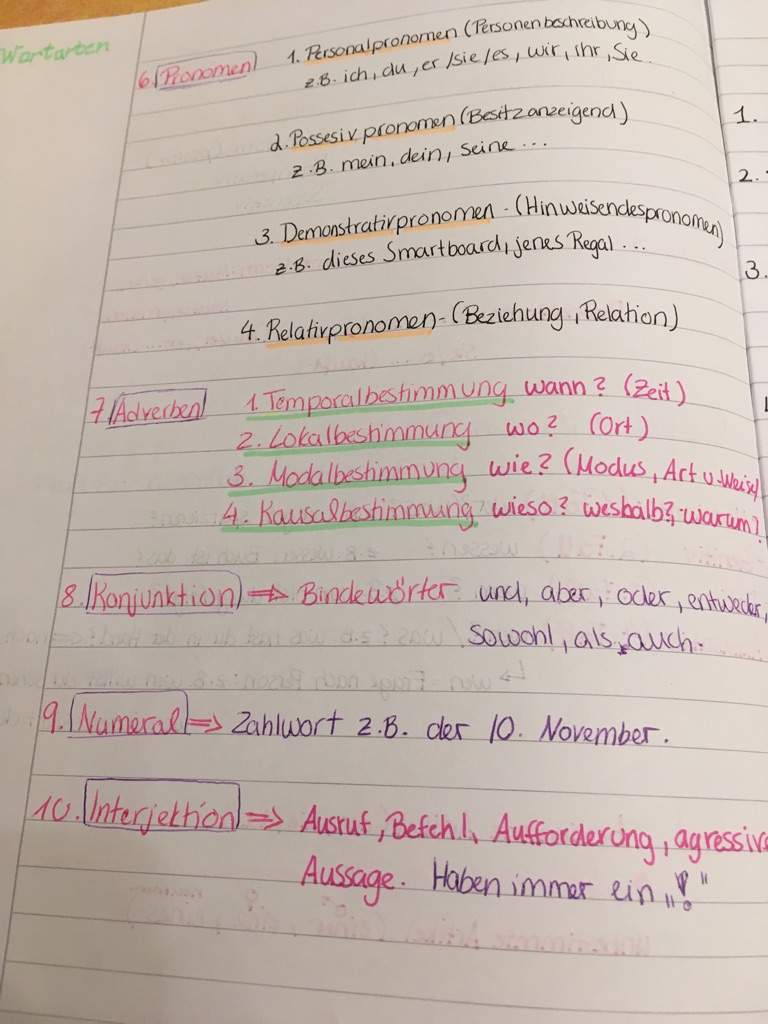 Wortarten
6. Pronomen 1. Personalpronomen (Personenbeschreibung)
z.B. ich, du, er/sie/es, wir, ihr, Sie.
2. Possesivpronomen (Besitzanzeigend)
z.B. mein, dein, seine ...
3. Demonstrativpronomen - (Hinweisendespronomen)
z.B. dieses Smartboard, jenes Regal ...
4. Relativpronomen - (Beziehung, Relation)
7 Adverben 1. Temporalbestimmung wann? (Zeit)
2. Lokalbestimmung wo? (Ort)
3. Modalbestimmung wie? (Modus, Art u. Weise)
4. Kausalbestimmung wieso? weshalb?, warum?
8. Konjunktion => Bindewörter und, aber, oder, entweder,
sowohl, als, auch.
9. Numeral => Zahlwort z.B. der 10. November.
10. Interjektion => Ausruf, Befehl, Aufforderung, agressive
Aussage. Haben immer ein „!"
1.
2.
3.